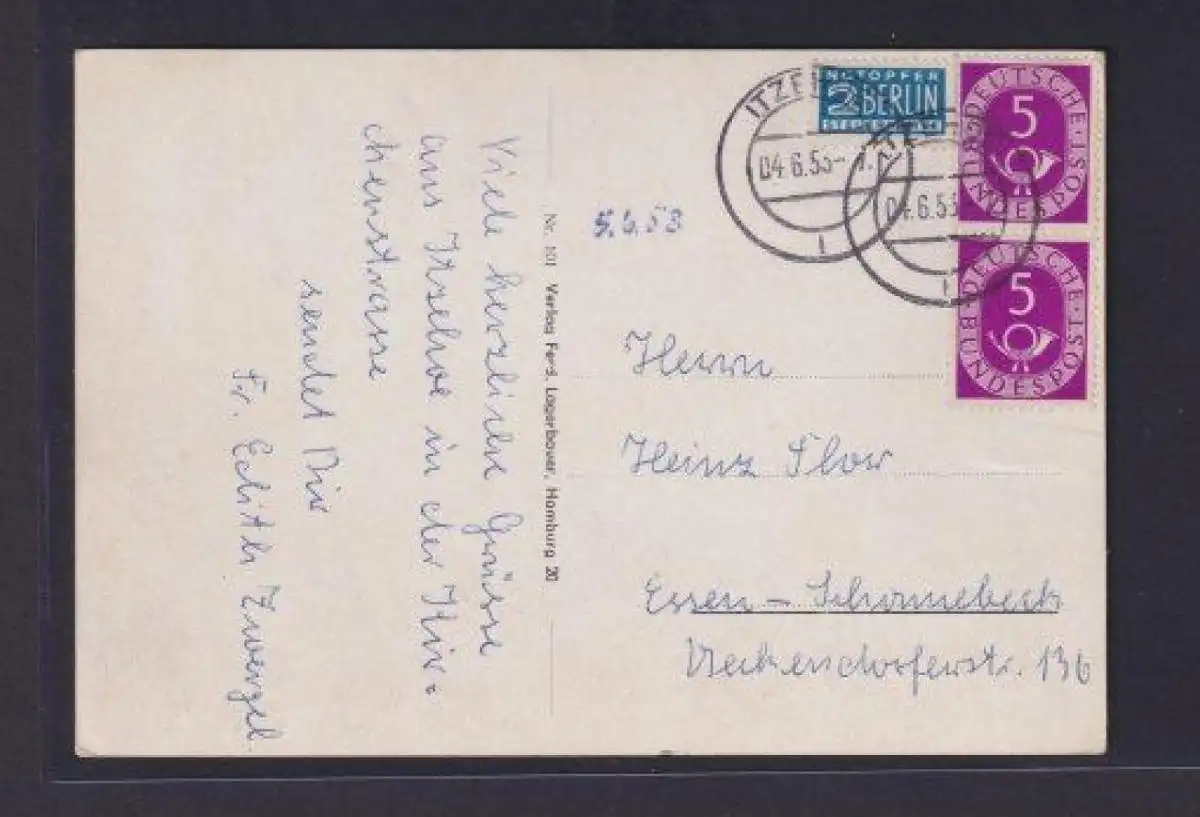 Viele herzliche Grüsse
aus Itzehoe in der Kir-
chenstrasse
sendet Dir
Fr. Edith Zwergel.
Nr. 101 Verlag Ferd. Lagerbauer, Hamburg 20
NOTOPFER
2 BERLIN
STEUERMARKE
ITZEHOE
04.6.53-
1
ITZEHOE
04.6.53
1
DEUTSCHE BUNDESPOST
5
DEUTSCHE BUNDESPOST
5
5.6.53
Herrn
Heinz Flor
Essen-Schonnebeck
136